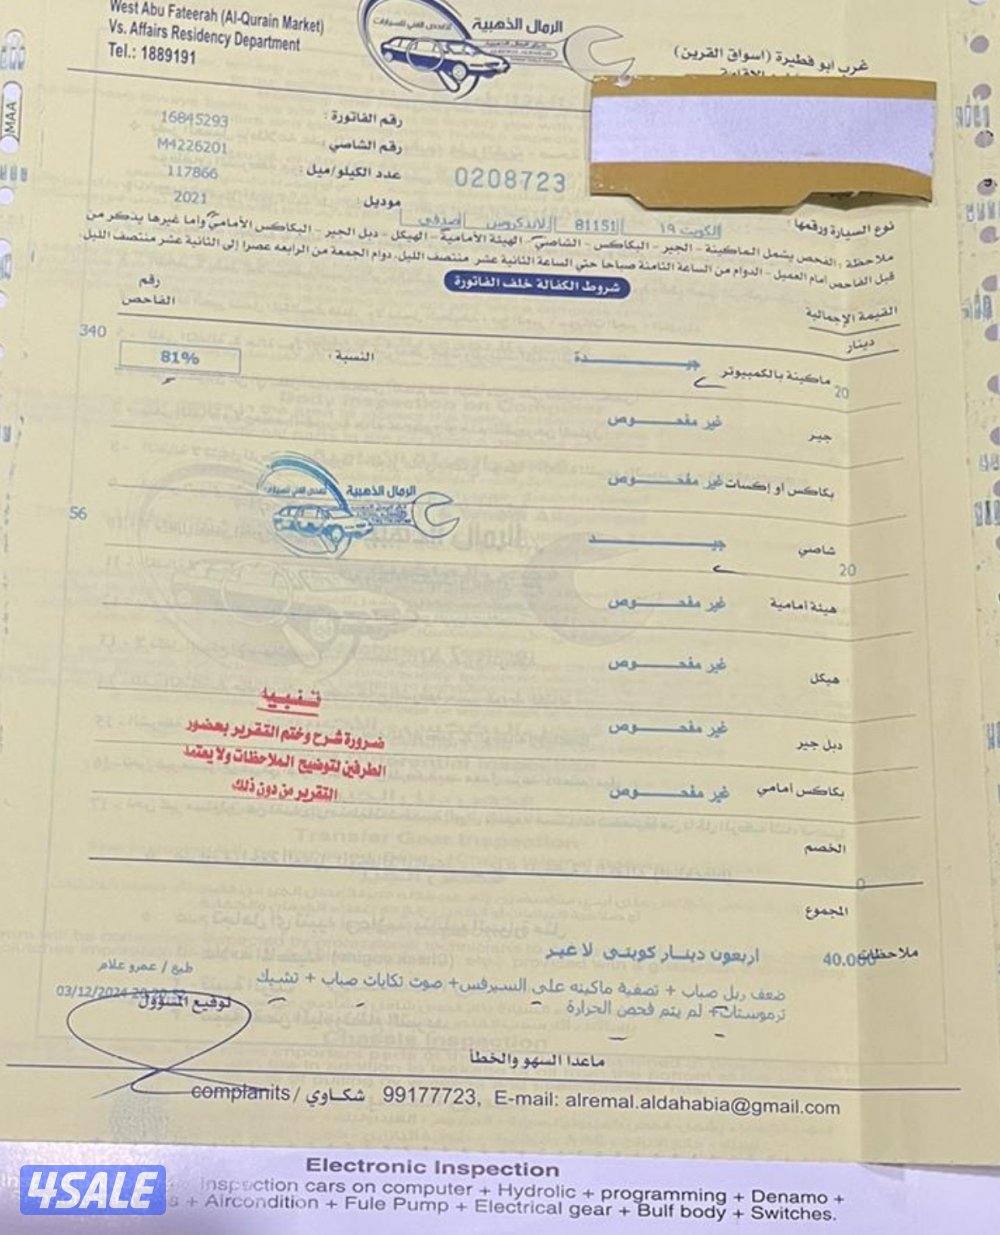 West Abu Fateerah (Al-Qurain Market)
Vs. Affairs Residency Department
Tel.: 1889191
الرمال الذهبية
للفحص الفني للسيارات
غرب أبو فطيرة (أسواق القرين)
MAA
رقم الفاتورة : 16845293
رقم الشاصي : M4226201
عدد الكيلو/ميل : 117866
موديل : 2021
0208723
نوع السيارة ورقمها : الكويت ١٩ \ 81151 \ لاندكروس \ صدفي
ملاحظة : الفحص يشمل الماكينة - الجير - البكاكس - الشاصي - الهيئة الأمامية - الهيكل - دبل الجير - البكاكس الأمامي وأما غيرها يذكر من
قبل الفاحص أمام العميل - الدوام من الساعة الثامنة صباحا حتى الساعة الثانية عشر منتصف الليل. دوام الجمعة من الرابعة عصرا إلى الثانية عشر منتصف الليل
شروط الكفالة خلف الفاتورة
القيمة الإجمالية
دينار
رقم الفاحص
20 ماكينة بالكمبيوتر جيــدة النسبة : 81% 340
جير غير مفحــوص
بكاكس أو إكسات غير مفحــوص
الرمال الذهبية
للفحص الفني للسيارات
20 شاصي جيــد 56
هيئة أمامية غير مفحــوص
هيكل غير مفحــوص
دبل جير غير مفحــوص
بكاكس أمامي غير مفحــوص
تنبيه
ضرورة شرح وختم التقرير بحضور
الطرفين لتوضيح الملاحظات ولا يعتمد
التقرير من دون ذلك
الخصم 0
المجموع 40.000 اربعون دينار كويتى لا غير
ملاحظات
ضعف ربل صباب + تصفية ماكينه على السيرفس+ صوت تكايات صباب + تشيك
ترموستات+ لم يتم فحص الحرارة
طبع / عمرو علام
03/12/2024 20:20:52
توقيع المسؤول
ماعدا السهو والخطأ
complanits / شكاوي 99177723, E-mail: alremal.aldahabia@gmail.com
Electronic Inspection
Inspection cars on computer + Hydrolic + programming + Denamo +
+ Aircondition + Fule Pump + Electrical gear + Bulf body + Switches.
4SALE